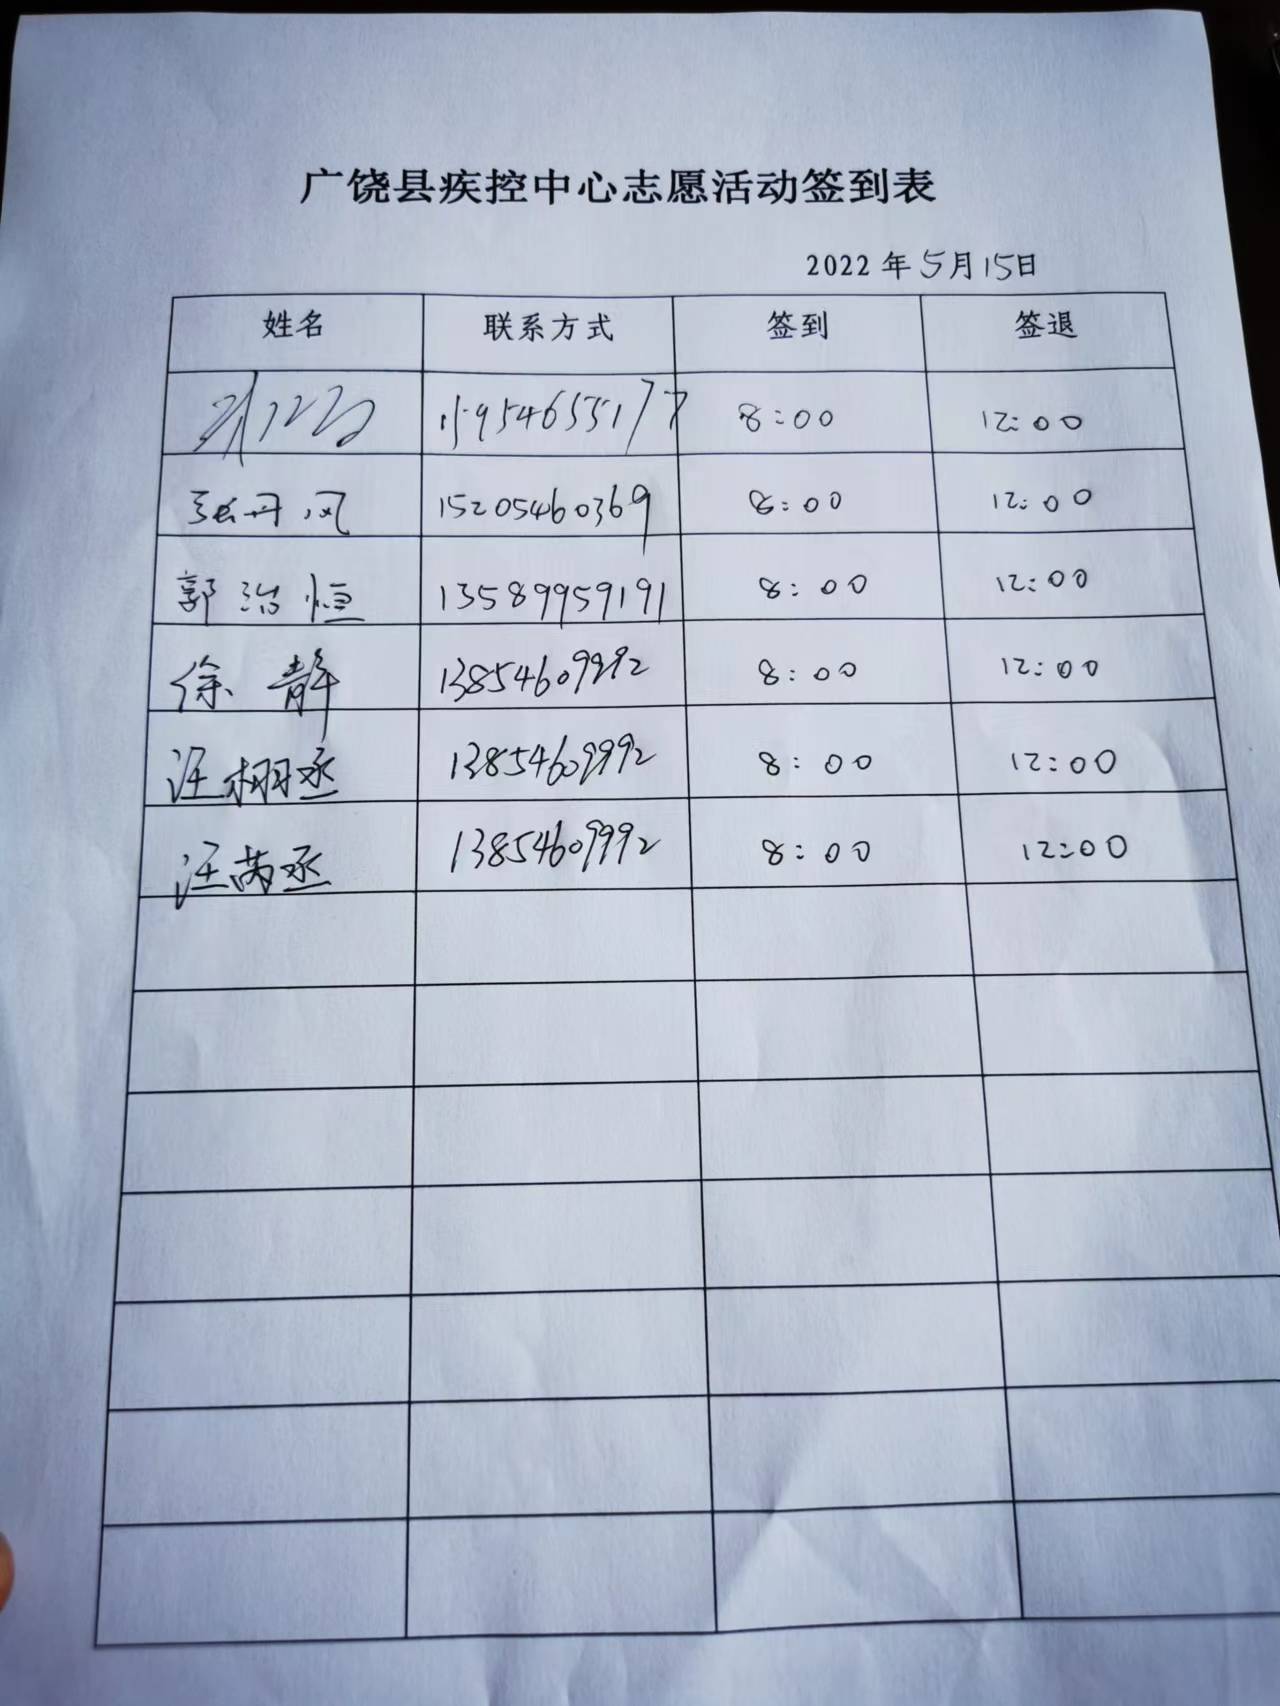 广饶县疾控中心志愿活动签到表
2022年5月15日
姓名 联系方式 签到 签退
15954655177 8:00 12:00
张丹凤 15205460369 8:00 12:00
郭治恒 13589959191 8:00 12:00
徐静 13854609992 8:00 12:00
汪栩丞 13854609992 8:00 12:00
汪芮丞 13854609992 8:00 12:00